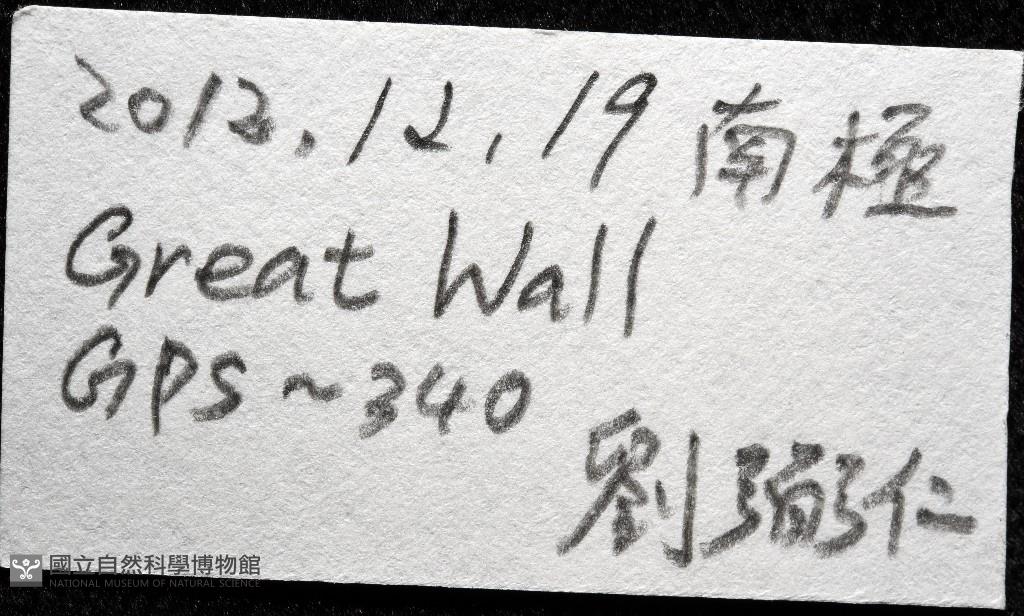 2012.12.19 南極
Great Wall
GPS~340
劉弼仁
國立自然科學博物館
NATIONAL MUSEUM OF NATURAL SCIENCE